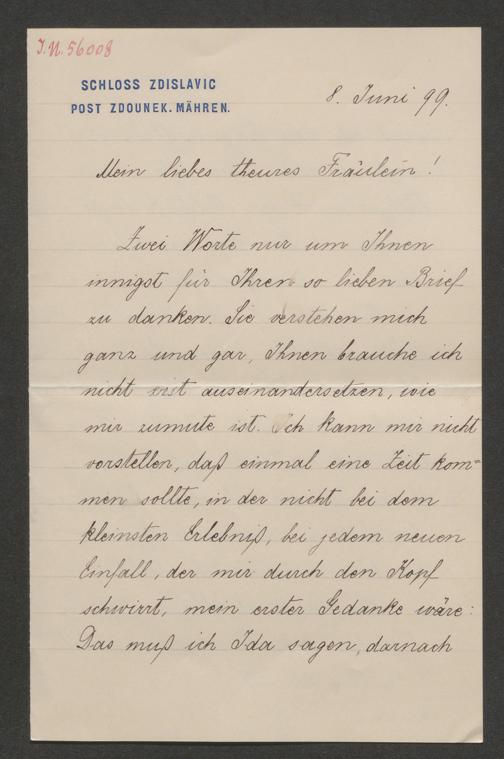 I.N. 56008
SCHLOSS ZDISLAVIC
POST ZDOUNEK. MÄHREN.
8. Juni 99.
Mein liebes theures Fräulein!
Zwei Worte nur um Ihnen
innigst für Ihren so lieben Brief
zu danken. Sie verstehen mich
ganz und gar, Ihnen brauche ich
nicht erst auseinandersetzen, wie
mir zumute ist. Ich kann mir nicht
vorstellen, daß einmal eine Zeit kom=
men sollte, in der nicht bei dem
kleinsten Erlebniß, bei jedem neuen
Einfall, der mir durch den Kopf
schwirrt, mein erster Gedanke wäre:
Das muß ich Ida sagen, darnach